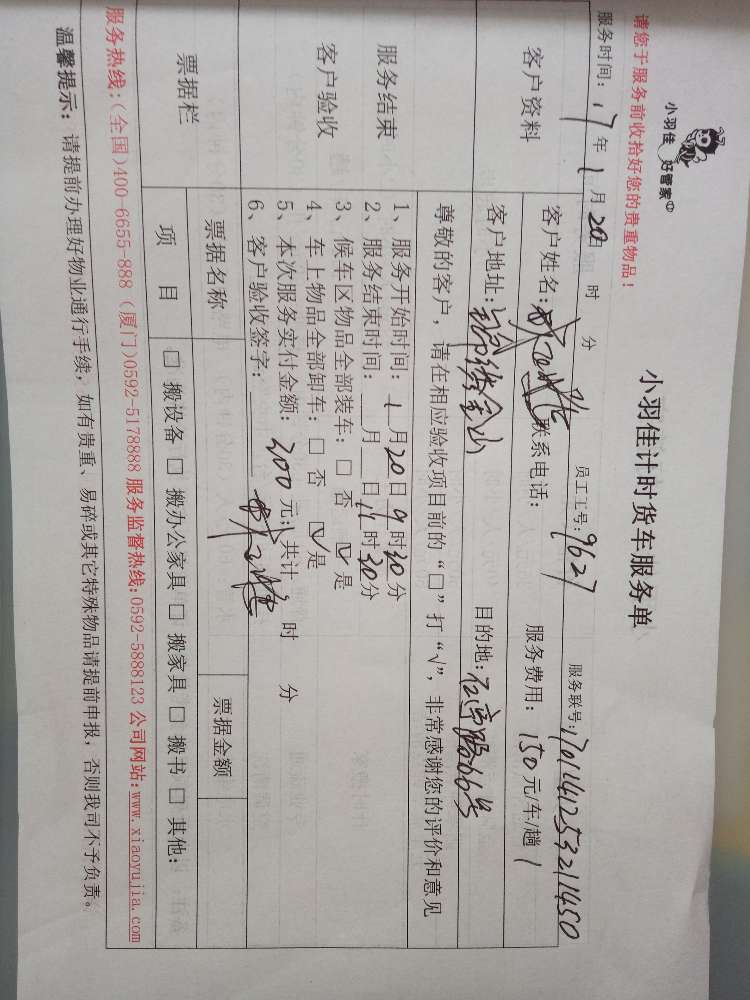 小羽佳 好管家
小羽佳计时货车服务单
请您于服务前收拾好您的贵重物品！
服务时间：17年1月20日 时 分 员工工号：9627 服务联号：1701141253211450
客户资料
客户姓名： 联系电话： 服务费用：150元/车/趟
客户地址： 目的地：
服务结束
客户验收
尊敬的客户，请在相应验收项目前的“□”打“√”，非常感谢您的评价和意见
1、服务开始时间：1月20日9时30分
2、服务结束时间： 月 日11时30分
3、候车区物品全部装车：□ 否 ☑ 是
4、车上物品全部卸车：□ 否 ☑ 是
5、本次服务实付金额：300元；共计 时 分
6、客户验收签字：
票据栏 票据名称 票据金额
项 目 □ 搬设备 □ 搬办公家具 □ 搬家具 □ 搬书 □ 其他：
服务热线:(全国)400-6655-888 (厦门)0592-5178888 服务监督热线:0592-5888123 公司网站:www.xiaoyujia.com
温馨提示：请提前办理好物业通行手续，如有贵重、易碎或其它特殊物品请提前申报，否则我司不予负责。